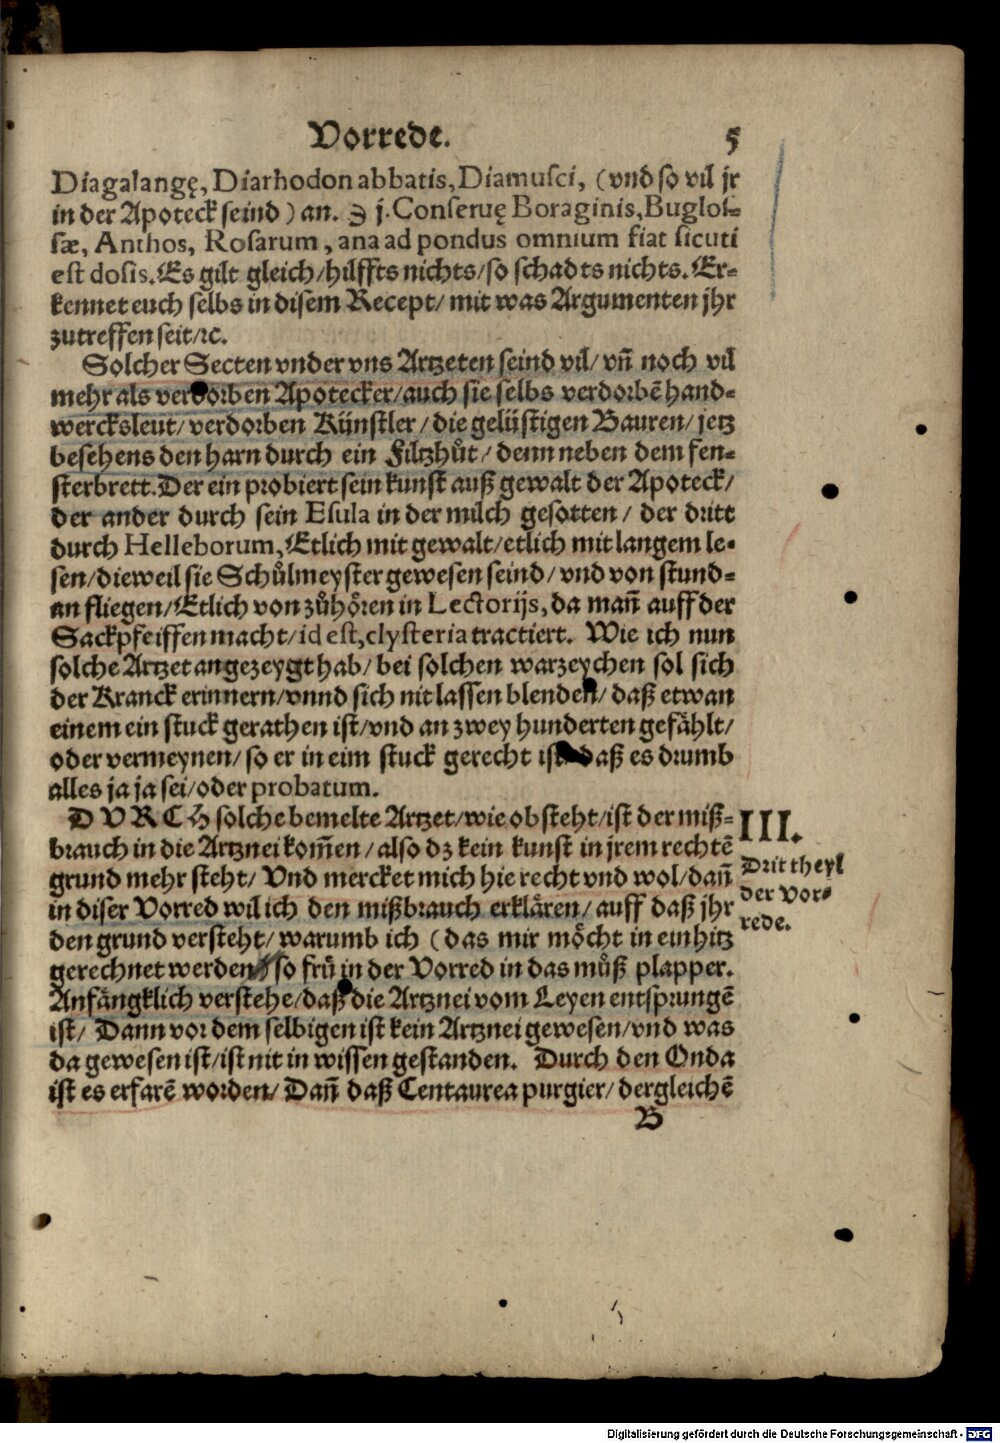 Vorrede. 5
Diagalangę, Diarhodon abbatis, Diamusci, (vnd so vil jr
in der Apoteck seind) an. ℈ j. Conseruę Boraginis, Buglos-
sæ, Anthos, Rosarum, ana ad pondus omnium fiat sicuti
est dosis. Es gilt gleich/ hilffts nichts/ so schadts nichts. Er-
kennet euch selbs in disem Recept/ mit was Argumenten jhr
zutreffen seit/ ꝛc.
Solcher Secten vnder vns Artzeten seind vil/ vñ noch vil
mehr als verdorben Apotecker/ auch sie selbs verdorbẽ hand-
wercksleut/ verdorben Künstler/ die gelüstigen Bauren/ jetz
besehens den harn durch ein Filtzhůt/ denn neben dem fen-
sterbrett. Der ein probiert sein kunst auß gewalt der Apoteck/
der ander durch sein Esula in der milch gesotten/ der dritt
durch Helleborum, Etlich mit gewalt/ etlich mit langem le-
sen/ dieweil sie Schůlmeyster gewesen seind/ vnd von stund-
an fliegen/ Etlich von zůhören in Lectorijs, da mañ auff der
Sackpfeiffen macht/ id est, clysteria tractiert. Wie ich nun
solche Artzet angezeygt hab/ bei solchen warzeychen sol sich
der Kranck erinnern/ vnnd sich nit lassen blenden/ daß etwan
einem ein stuck gerathen ist/ vnd an zwey hunderten gefählt/
oder vermeynen/ so er in eim stuck gerecht ist daß es drumb
alles ja ja sei/ oder probatum.
DVRCH solche bemelte Artzet/ wie ob steht/ ist der miß-
brauch in die Artznei kom̃en/ also dz kein kunst in jrem rechtẽ
grund mehr steht/ Vnd mercket mich hie recht vnd wol/ dañ
in diser Vorred wil ich den mißbrauch erklären/ auff daß jhr
den grund versteht/ warumb ich (das mir möcht in ein hitz
gerechnet werden so frü in der Vorred in das můß plapper.
Anfängklich verstehe/ daß die Artznei vom Leyen entsprungẽ
ist/ Dann vor dem selbigen ist kein Artznei gewesen/ vnd was
da gewesen ist/ ist nit in wissen gestanden. Durch den Onda
ist es erfarẽ worden/ Dañ daß Centaurea purgier/ dergleichẽ
B
III.
Drit theyl
der Vor-
rede.
Digitalisierung gefördert durch die Deutsche Forschungsgemeinschaft - DFG